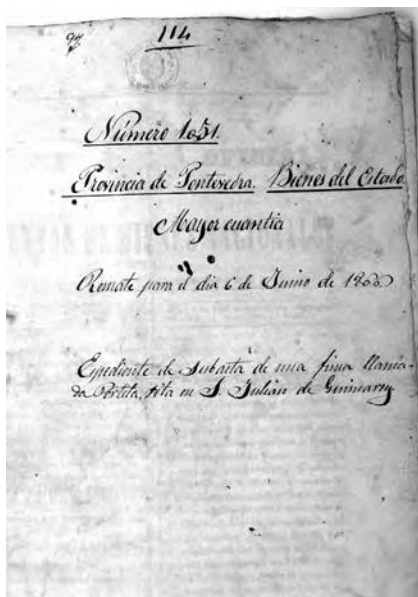 114
Número 1.051.
Provincia de Pontevedra. Bienes del Estado.
Mayor cuantía
Remate para el dia 6 de Junio de
Expediente de Subasta de una finca llama-
da Portita, sita en S. Julian de Guimarey